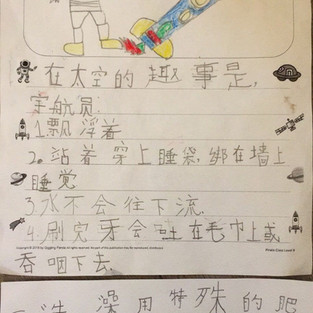 在太空的趣事是，
宇航员：
1.飘浮着
2.站着穿上睡袋，绑在墙上
睡觉
3.水不会往下流
4.刷完牙会吐在毛巾上或
吞咽下去.
澡用特殊的肥